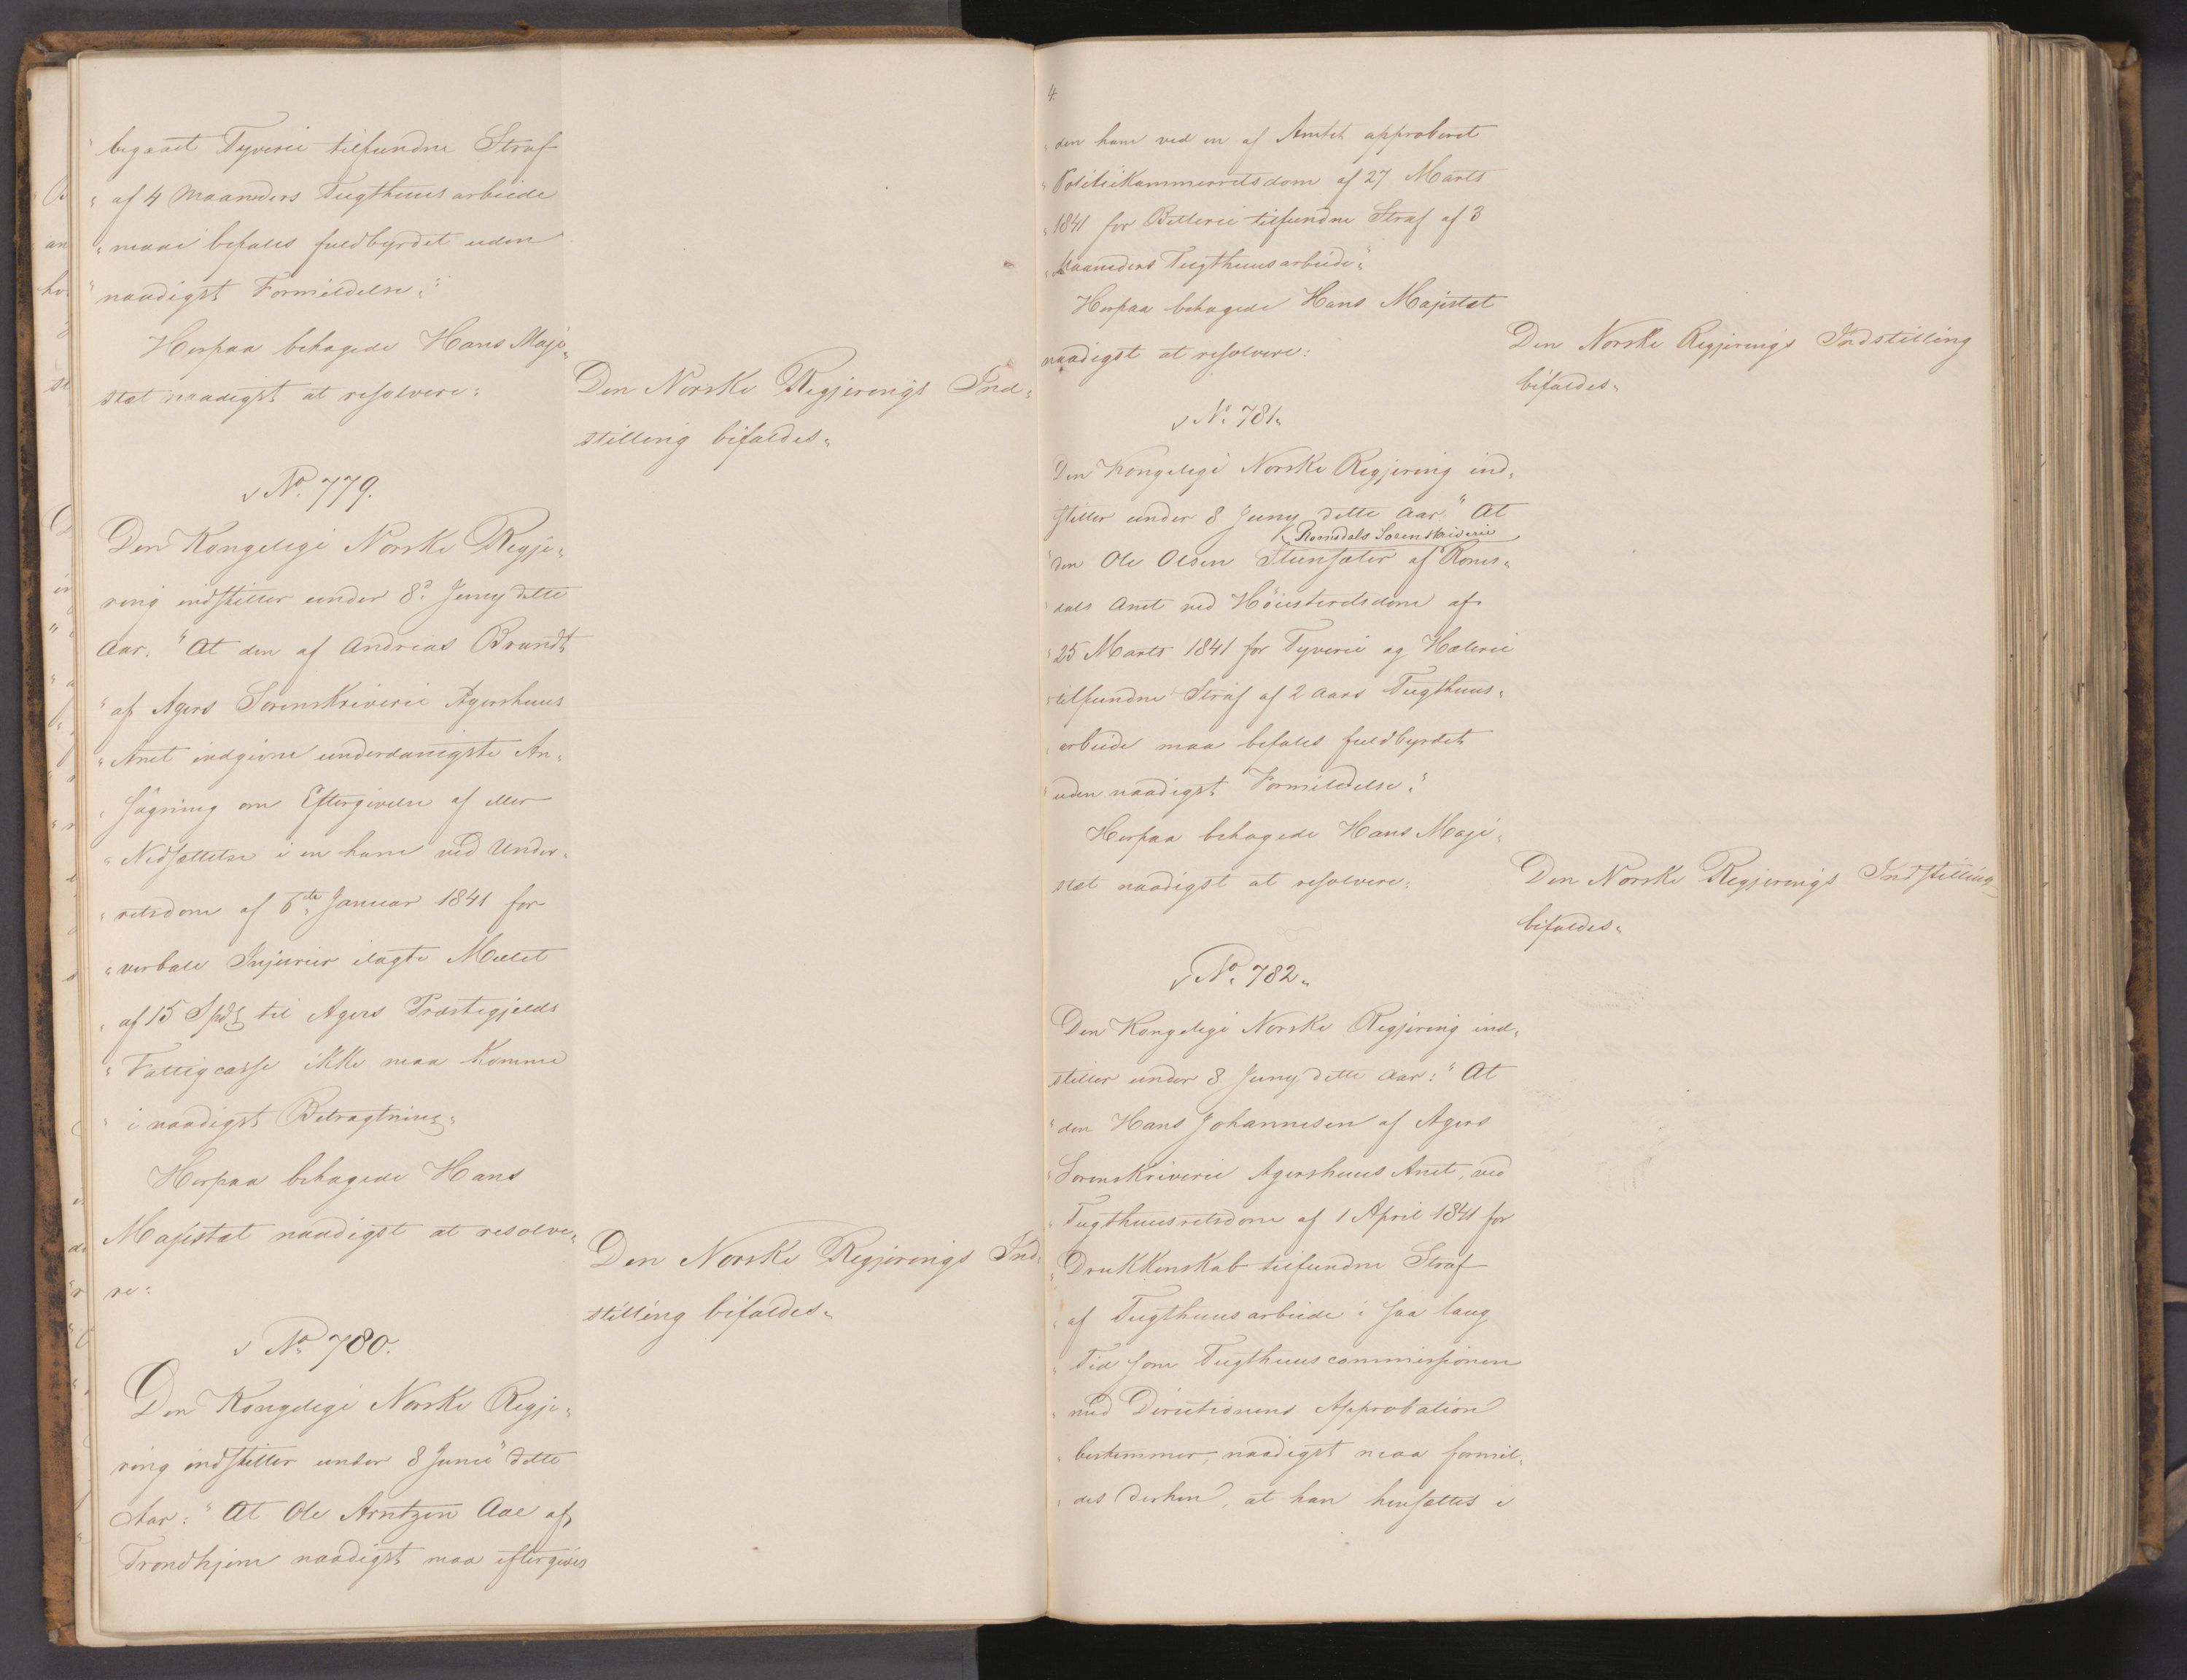 begaaet Tyverie tilfundne Straf
" af 4 Maaneders Tugthuusarbeide
" maae befales fuldbyrdet uden
" naadigst Formildelse."
Herpaa behagede Hans Maje-
stæt naadigst at resolvere:
Den Norske Regjerings Ind-
stilling bifaldes.
No. 779.
Den Kongelige Norske Regje-
ring indstiller under 8de Juny dette
Aar: "At den af Andreas Brandt
" af Agers Sorenskriverie Agershuus
" Amt indgivne underdanigste An-
" søgning om Eftergivelse af eller
" Nedsættelse i en ham ved Under-
" retsdom af 6te Januar 1841 for
" verbale Injurier ilagte Mulct
" af 15 Spd til Agers Præstegjelds
" Fattigcasse ikke maa komme
" i naadigst Betragtning."
Herpaa behagede Hans
Majestæt naadigst at resolve-
re:
Den Norske Regjerings Ind-
stilling bifaldes.
No. 780.
Den Kongelige Norske Regje-
ring indstiller under 8 Junii dette
Aar: "At Ole Arntzen Aae af
Trondhjem naadigst maa eftergives
4.
" den ham ved en af Amtet approberet
" Politiekammerretsdom af 27 Marts
" 1841 for Betlerie tilfundne Straf af 3
" Maaneders Tugthuusarbeide."
Herpaa behagede Hans Majestæt
naadigst at resolvere:
Den Norske Regjerings Indstilling
bifaldes.
No. 781.
Den Kongelige Norske Regjering ind-
stiller under 8 Juny dette Aar: "At
Romsdals Sorenskriverie
" den Ole Olsen Steensæter af Roms-
" dals Amt ved Høiesteretsdom af
" 25 Marts 1841 for Tyverie og Hælerie
" tilfundne Straf af 2 Aars Tugthuus-
" arbeide maa befales fuldbyrdet
" uden naadigst Formildelse."
Herpaa behagede Hans Maje-
stæt naadigst at resolvere:
Den Norske Regjerings Indstilling
bifaldes.
No. 782.
Den Kongelige Norske Regjering ind-
stiller under 8 Juny dette Aar: "At
" den Hans Johannesen af Agers
" Sorenskriverie Agershuus Amt, ved
" Tugthuusretsdom af 1 April 1841 for
" Drukkenskab tilfundne Straf
" af Tugthuusarbeide i saa lang
" Tid som Tugthuuscommissionen
" med Directionens Approbation
" bestemmer, naadigst maa formil-
" des derhen, at han hensættes i